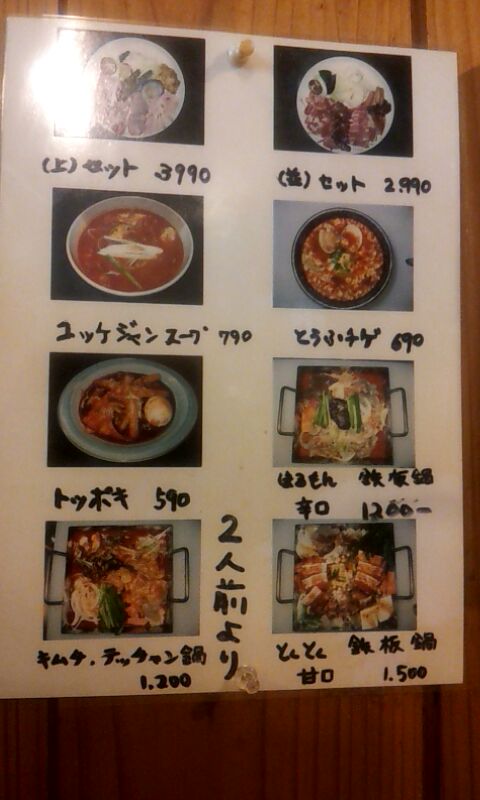 (上)セット 3990
(並)セット 2.990
ユッケジャンスープ 790
とうふチゲ 690
トッポキ 590
ほるもん 鉄板鍋
辛口 1200ー
2人前より
キムチ.テッチャン鍋
1.200
とんとん 鉄板鍋
甘口 1.500